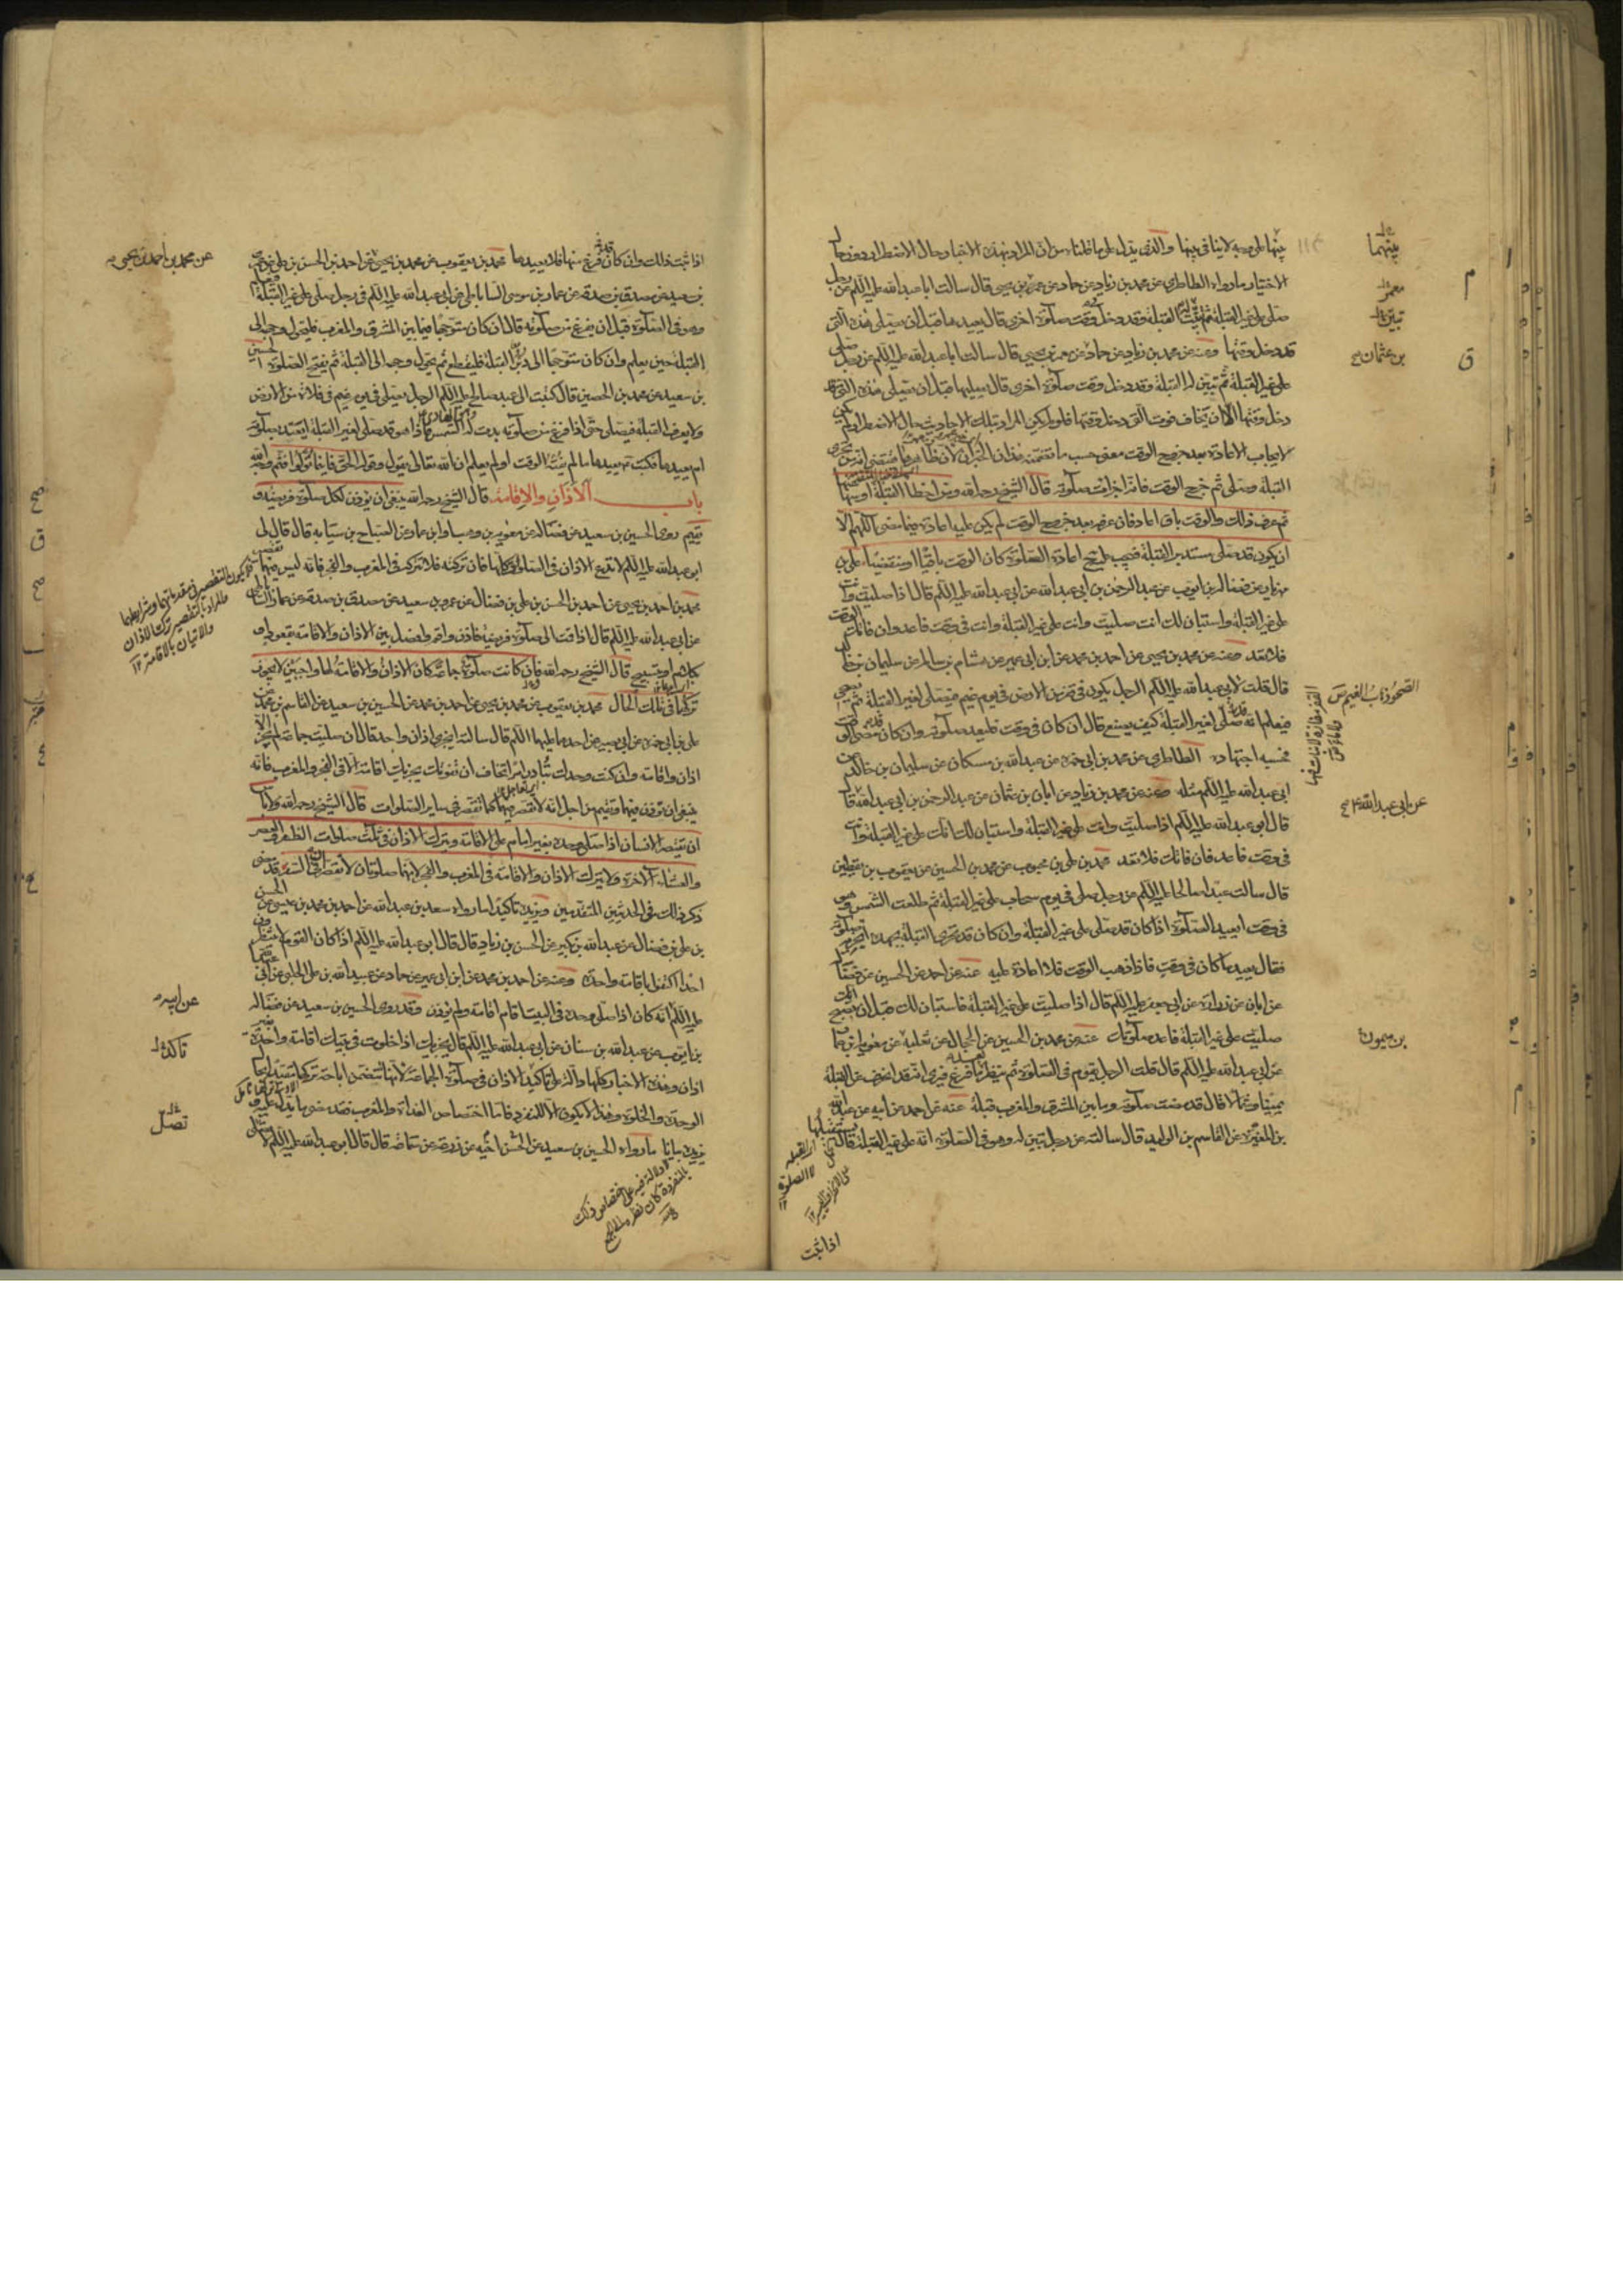 بينها على وجه لا ينافي بينها والذي يدل على ما قلناه من ان المراد بهذه الاخبار حال الاضطرار دون حال
الاختيار ما رواه الطاطري عن محمد بن زياد عن حماد عن عمرو بن يحيى قال سالت ابا عبدالله عليه السلم عن رجل
صلى على غير القبلة ثم تبينت له القبلة وقد دخل وقت صلوة اخرى قال يعيدها قبل ان يصلي هذه التي
قد دخل وقتها وعنه عن محمد بن زياد عن حماد عن معمر بن يحيى قال سالت ابا عبدالله عليه السلم عن رجل صلى
على غير القبلة ثم تبين له القبلة وقد دخل وقت صلوة اخرى قال يصليها قبل ان يصلي هذه التي قد
دخل وقتها الا ان يخاف فوت التي دخل وقتها فلو لم يكن المراد بتلك الاحاديث حال الاضطرار لم يكن
لايجاب الاعادة بعد خروج الوقت معنى حسب ما تضمنه هذان الخبران لان ظاهرهما يقتضي ان من تحرى
القبلة وصلى ثم خرج الوقت فانه اجزأت صلوته قال الشيخ رحمه الله ومن اخطأ القبلة او سها
ثم عرف ذلك والوقت باق اعاد فان عرفه بعد خروج الوقت لم يكن عليه اعادة فيما مضى اللهم الا
ان يكون قد صلى مستدبر القبلة فيجب عليه اعادة الصلوة كان الوقت باقيا او منقضيا علي بن
مهزيار عن فضالة بن ايوب عن عبد الرحمن بن ابي عبدالله عن ابي عبدالله عليه السلم قال اذا صليت وانت
على غير القبلة واستبان لك انك صليت وانت على غير القبلة وانت في وقت فاعد وان فاتك الوقت
فلا تعد وعنه عن محمد بن يحيى عن احمد بن محمد عن ابن ابي عمير عن هشام بن سالم عن سليمان بن خالد
قال قلت لابي عبدالله عليه السلم الرجل يكون في قفر من الارض في يوم غيم فيصلي لغير القبلة ثم يصحي
فيعلم انه قد صلى لغير القبلة كيف يصنع قال ان كان في وقت فليعد صلوته وان كان قد مضى الوقت
فحسبه اجتهاده الطاطري عن محمد بن ابي حمزة عن عبدالله بن مسكان عن سليمان بن خالد عن
ابي عبدالله عليه السلم مثله وعنه عن محمد بن زياد عن ابان بن عثمان عن عبد الرحمن بن ابي عبدالله قال
قال ابو عبدالله عليه السلم اذا صليت وانت على غير القبلة واستبان لك انك على غير القبلة وانت
في وقت فاعد فان فاتك فلا تعد محمد بن علي بن محبوب عن محمد بن الحسين عن يعقوب بن يقطين
قال سالت عبدا صالحا عليه السلم عن رجل صلى في يوم سحاب على غير القبلة ثم طلعت الشمس وهو
في وقت ايعيد الصلوة اذا كان قد صلى على غير القبلة وان كان قد تحرى القبلة بجهده اتجزيه صلوته
فقال يعيد ما كان في وقت فاذا ذهب الوقت فلا اعادة عليه عنه عن احمد عن الحسين عن فضالة
عن ابان عن زرارة عن ابي جعفر عليه السلم قال اذا صليت على غير القبلة فاستبان لك قبل ان تصبح انك
صليت على غير القبلة فاعد صلوتك عنه عن محمد بن الحسين عن الحجال عن ثعلبة عن معوية بن عمار
عن ابي عبدالله عليه السلم قال قلت الرجل يقوم في الصلوة ثم ينظر بعد ما فرغ فيرى انه قد انحرف عن القبلة
يمينا وشمالا قال قد مضت صلوته وما بين المشرق والمغرب قبلة عنه عن احمد عن ابيه عن عبدالله
بن المغيرة عن القاسم بن الوليد قال سالته عن رجل تبين له وهو في الصلوة انه على غير القبلة قال يستقبلها
بينهما
معمر
تبين
بن عثمان
عن ابي عبدالله ع
بن ميمون
اذا ثبت
اذا ثبت ذلك وان كان قد فرغ منها فلا يعيدها محمد بن يعقوب عن محمد بن يحيى عن احمد بن الحسن بن علي عن عمرو
بن سعيد عن مصدق بن صدقة عن عمار بن موسى الساباطي عن ابي عبدالله عليه السلم في رجل صلى على غير القبلة
وهو في الصلوة قبل ان يفرغ من صلوته قال ان كان متوجها فيما بين المشرق والمغرب فليحول وجهه الى
القبلة حين يعلم وان كان متوجها الى دبر القبلة فليقطع ثم يحول وجهه الى القبلة ثم يفتح الصلوة الحسين
بن سعيد عن محمد بن الحصين قال كتبت الى عبد صالح عليه السلم الرجل يصلي في يوم غيم في فلاة من الارض
ولا يعرف القبلة فيصلي حتى اذا فرغ من صلوته بدت له الشمس فاذا هو قد صلى لغير القبلة ايعتد بصلوته
ام يعيدها فكتب يعيدها ما لم يفته الوقت اولم يعلم ان الله تعالى يقول وقوله الحق فاينما تولوا فثم وجه الله
باب الاذان والاقامة قال الشيخ رحمه الله ينبغي ان يؤذن لكل صلوة فريضة و
يقيم روى الحسين بن سعيد عن فضالة عن معوية بن وهب او ابن عمار عن الصباح بن سيابة قال قال لي
ابو عبدالله عليه السلم لا تدع الاذان في الصلوات كلها فان تركته فلا تتركه في المغرب والفجر فانه ليس فيهما تقصير
محمد بن احمد بن يحيى عن احمد بن الحسن بن علي بن فضال عن عمرو بن سعيد عن مصدق بن صدقة عن عمار الساباطي
عن ابي عبدالله عليه السلم قال اذا قمت الى صلوة فريضة فاذن واقم وافصل بين الاذان والاقامة بقعود او
كلام او تسبيح قال الشيخ رحمه الله فان كانت صلوة جماعة كان الاذان والاقامة لها واجبين لا يجوز
تركهما في تلك الحال محمد بن يعقوب عن محمد بن يحيى عن احمد بن محمد عن الحسين بن سعيد عن القاسم بن محمد عن
علي بن ابي حمزة عن ابي بصير عن احدهما عليهما السلم قال سالته ايجزي اذان واحد قال ان صليت جماعة لم يجز الا
اذان واقامة وان كنت وحدك تبادر امرا تخاف ان تفوتك يجزيك اقامة الا في الفجر والمغرب فانه
ينبغي ان تؤذن فيهما وتقيم من اجل انه لا تقصر فيهما كما تقصر في ساير الصلوات قال الشيخ رحمه الله ولا باس
ان يقتصر الانسان اذا صلى وحده بغير امام على الاقامة ويترك الاذان في ثلث صلوات الظهر والعصر
والعشاء الاخرة ولا يترك الاذان والاقامة في المغرب والفجر لانهما صلوتان لا تقصران في السفر قد مضى
ذكر ذلك في الحديثين المتقدمين ويزيده تاكيدا ما رواه سعد بن عبدالله عن احمد بن محمد بن عيسى عن الحسن
بن علي بن فضال عن عبدالله بن بكير عن الحسن بن زياد قال قال ابو عبدالله عليه السلم اذا كان القوم لا ينتظرون
احدا اكتفوا باقامة واحدة وعنه عن احمد بن محمد عن ابن ابي عمير عن حماد عن عبيدالله بن علي الحلبي عن ابي
عليه السلم انه كان اذا صلى وحده في البيت اقام اقامة ولم يؤذن وقد روى الحسين بن سعيد عن فضالة
بن ايوب عن عبدالله بن سنان عن ابي عبدالله عليه السلم قال يجزيك اذا خلوت في بيتك اقامة واحدة بغير
اذان وهذه الاخبار كلها دالة على تاكيد الاذان في صلوة الجماعة لانها تتضمن اباحة تركها مقيدا بحال
الوحدة والخلوة وهذا لا يكون الا للمنفرد فاما اختصاص الغداة والمغرب فقد مضى ما يدل عليه و
يزيده بيانا ما رواه الحسين بن سعيد عن الحسن اخيه عن زرعة عن سماعة قال قال ابو عبدالله عليه السلم لا تصل
عن محمد بن احمد بن يحيى
عن ابيه
تاكد
تصل